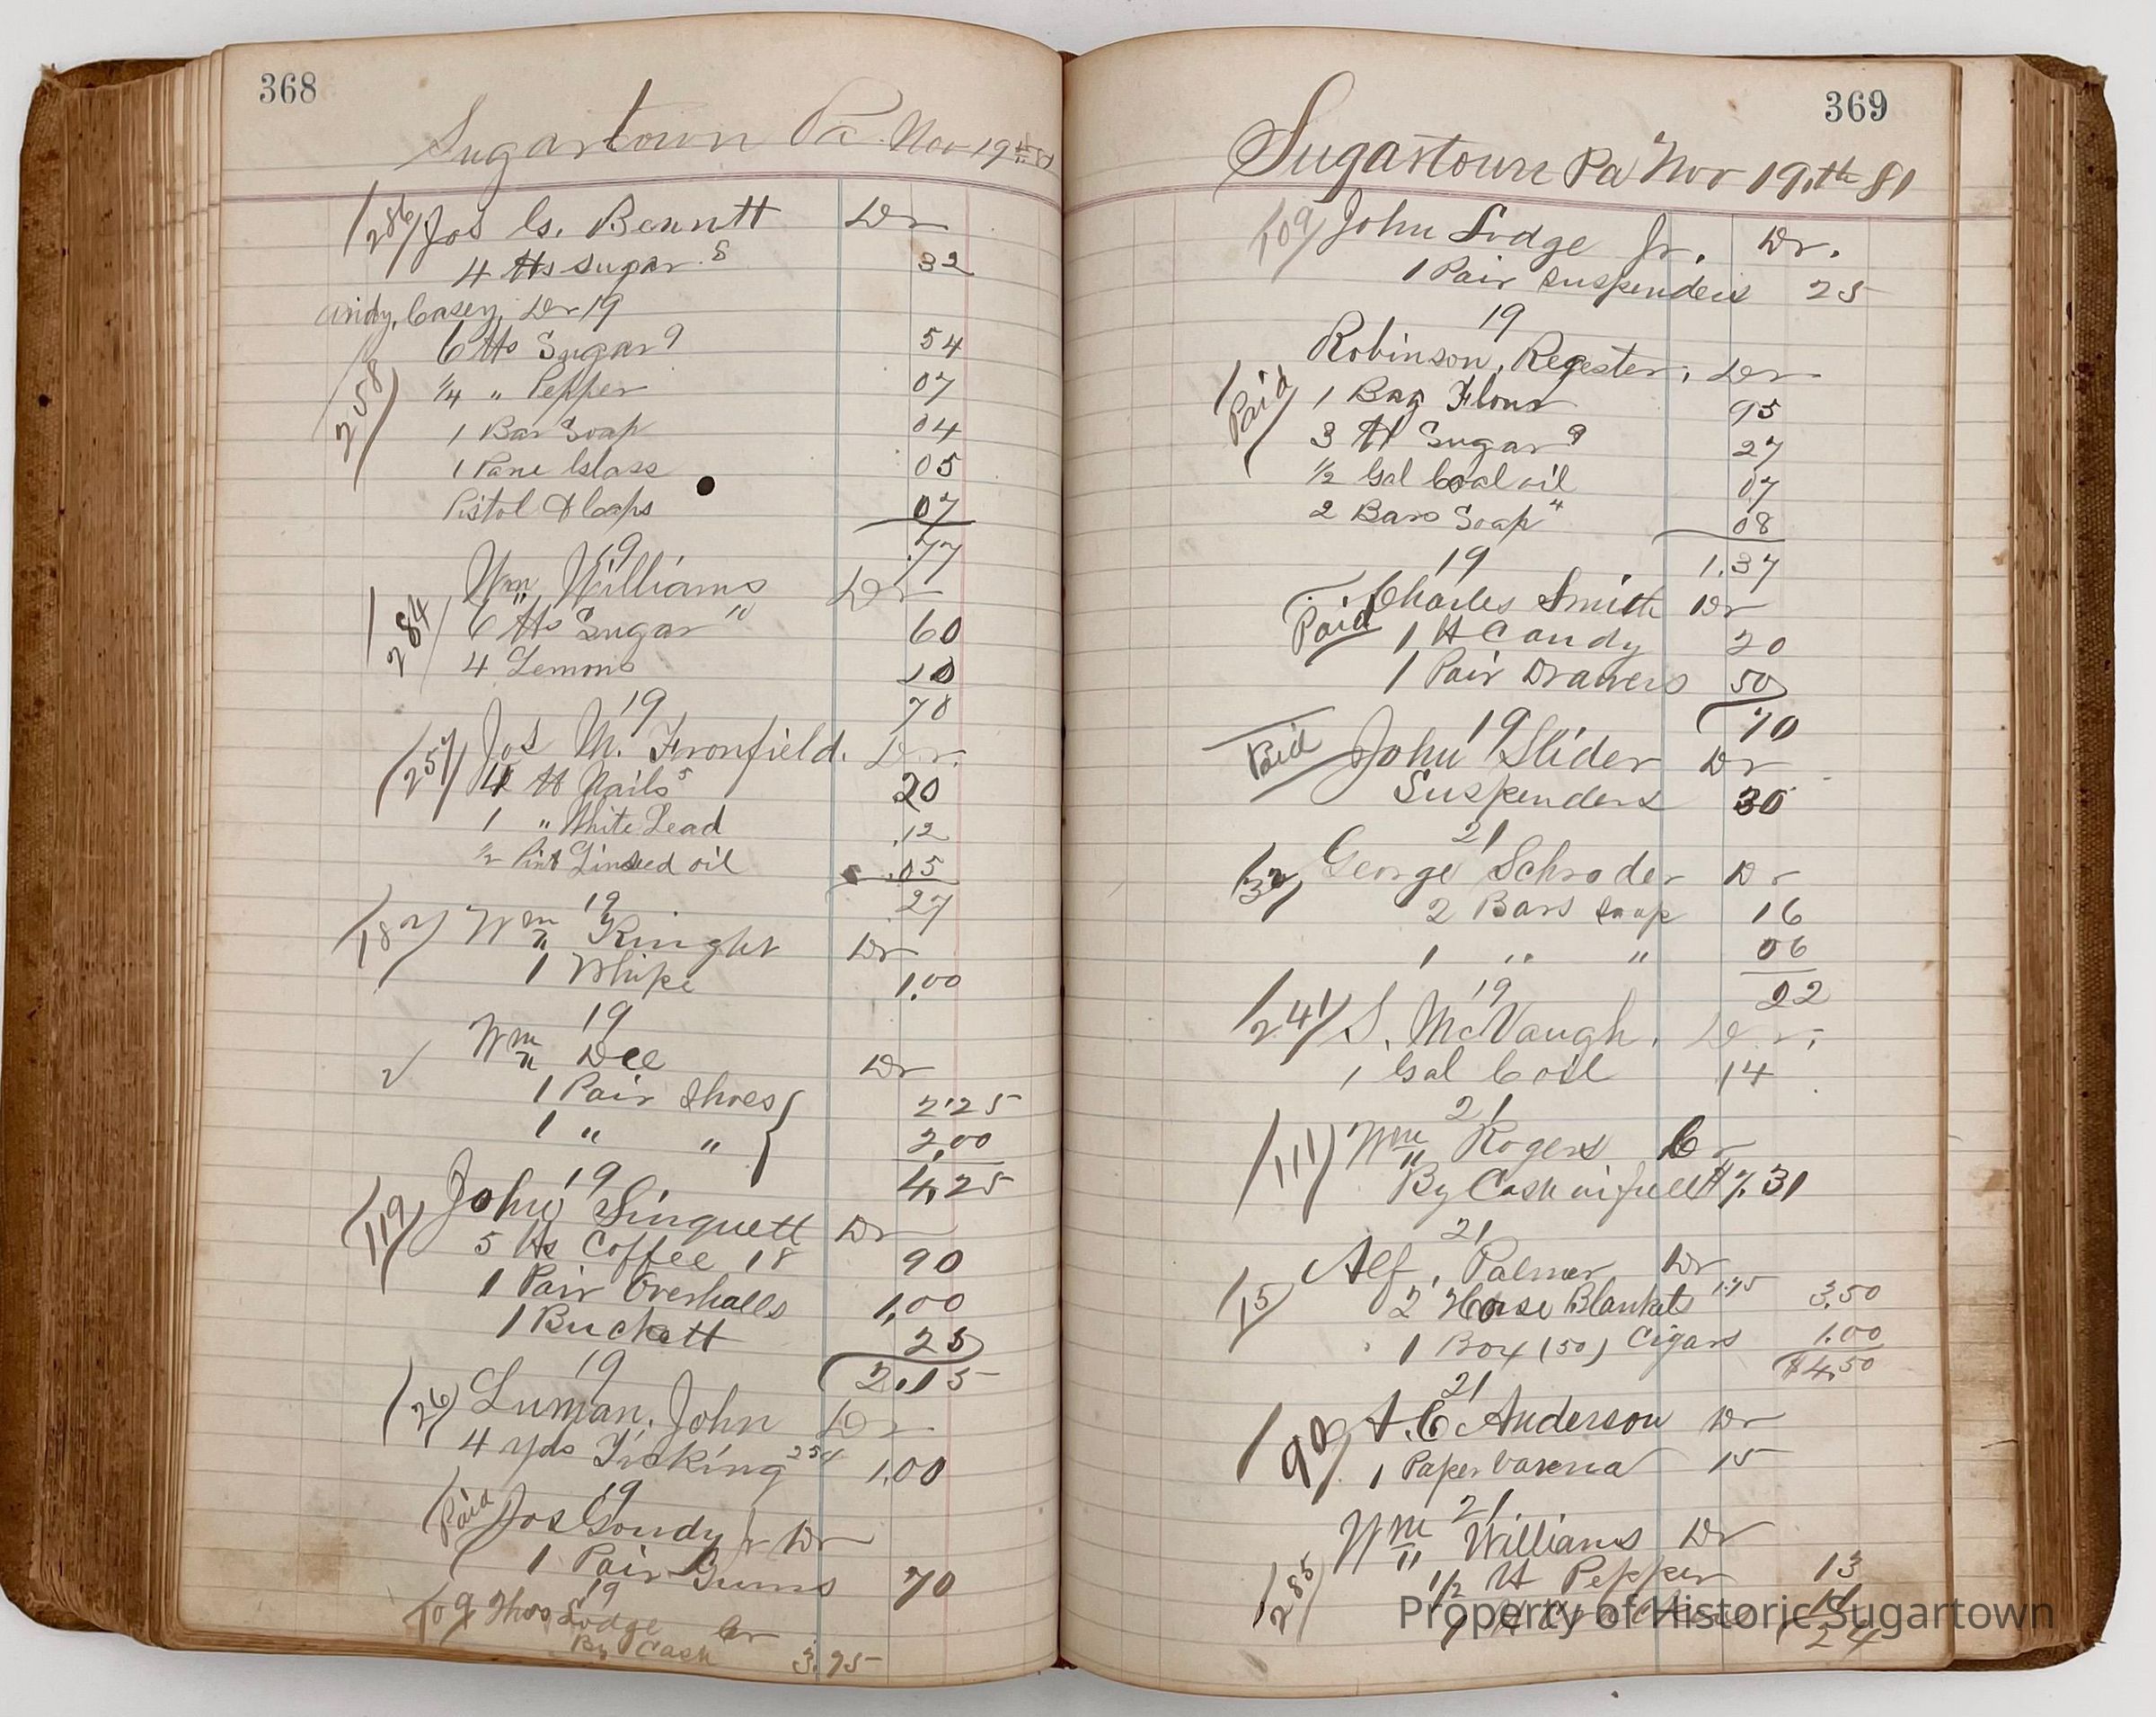 368
Sugartown Pa. Nov 19th 81
286 Jos C. Bennett Dr
4 lbs Sugar 8 32
Andy, Casey, Dr 19
258
6 lbs Sugar 9 54
1/4 " Pepper 07
1 Bar Soap 04
1 Pane Glass 05
Pistol & Caps 07
.77
19
Wm Williams Dr
284
6 lbs Sugar 10 60
4 Lemons 10
70
19
257 Jos M. Fronfield. Dr.
4 lb Nails 5 20
1 " White Lead .12
1/2 Pint Linseed oil .05
27
19
187 Wm Kinght Dr
1 Whipe 1.00
19
Wm Dee Dr
1 Pair Shoes 2.25
1 " " 2.00
4.25
19
119 John Singuett Dr
5 lbs Coffee 18 90
1 Pair Overhalls 1.00
1 Buckett 25
2.15
19
26 Luman, John Dr
4 yds Ticking 25 1.00
19
Paid Jos Goudy Jr Dr
1 Pair Gums 70
19
109 Thos Lodge Cr
By Cash 3.95
369
Sugartown Pa Nov 19.th 81
109 John Lodge Jr. Dr.
1 Pair Suspenders 25
19
Robinson, Regester, Dr
Paid
1 Bag Flour 95
3 lb Sugar 9 27
1/2 Gal Coal oil 07
2 Bars Soap 4 08
1.37
19
Charles Smith Dr
Paid 1 lb Candy 20
1 Pair Drawers 50
70
19
Paid John Slider Dr
Suspenders 30
21
32 George Schroder Dr
2 Bars Soap 16
1 " " 06
22
19
241 S. McVaugh. Dr.
1 Gal C oil 14
21
111 Wm Rogers Cr
By Cash in full $7.31
21
Alf, Palmer Dr
15 2 Horse Blankets 1.75 3.50
1 Box (50) Cigars 1.00
$4.50
21
A. C Anderson Dr
1 Paper 15
21
Wm Williams Dr
285
1/2 lb Pepper 13
11
24
Property of Historic Sugartown